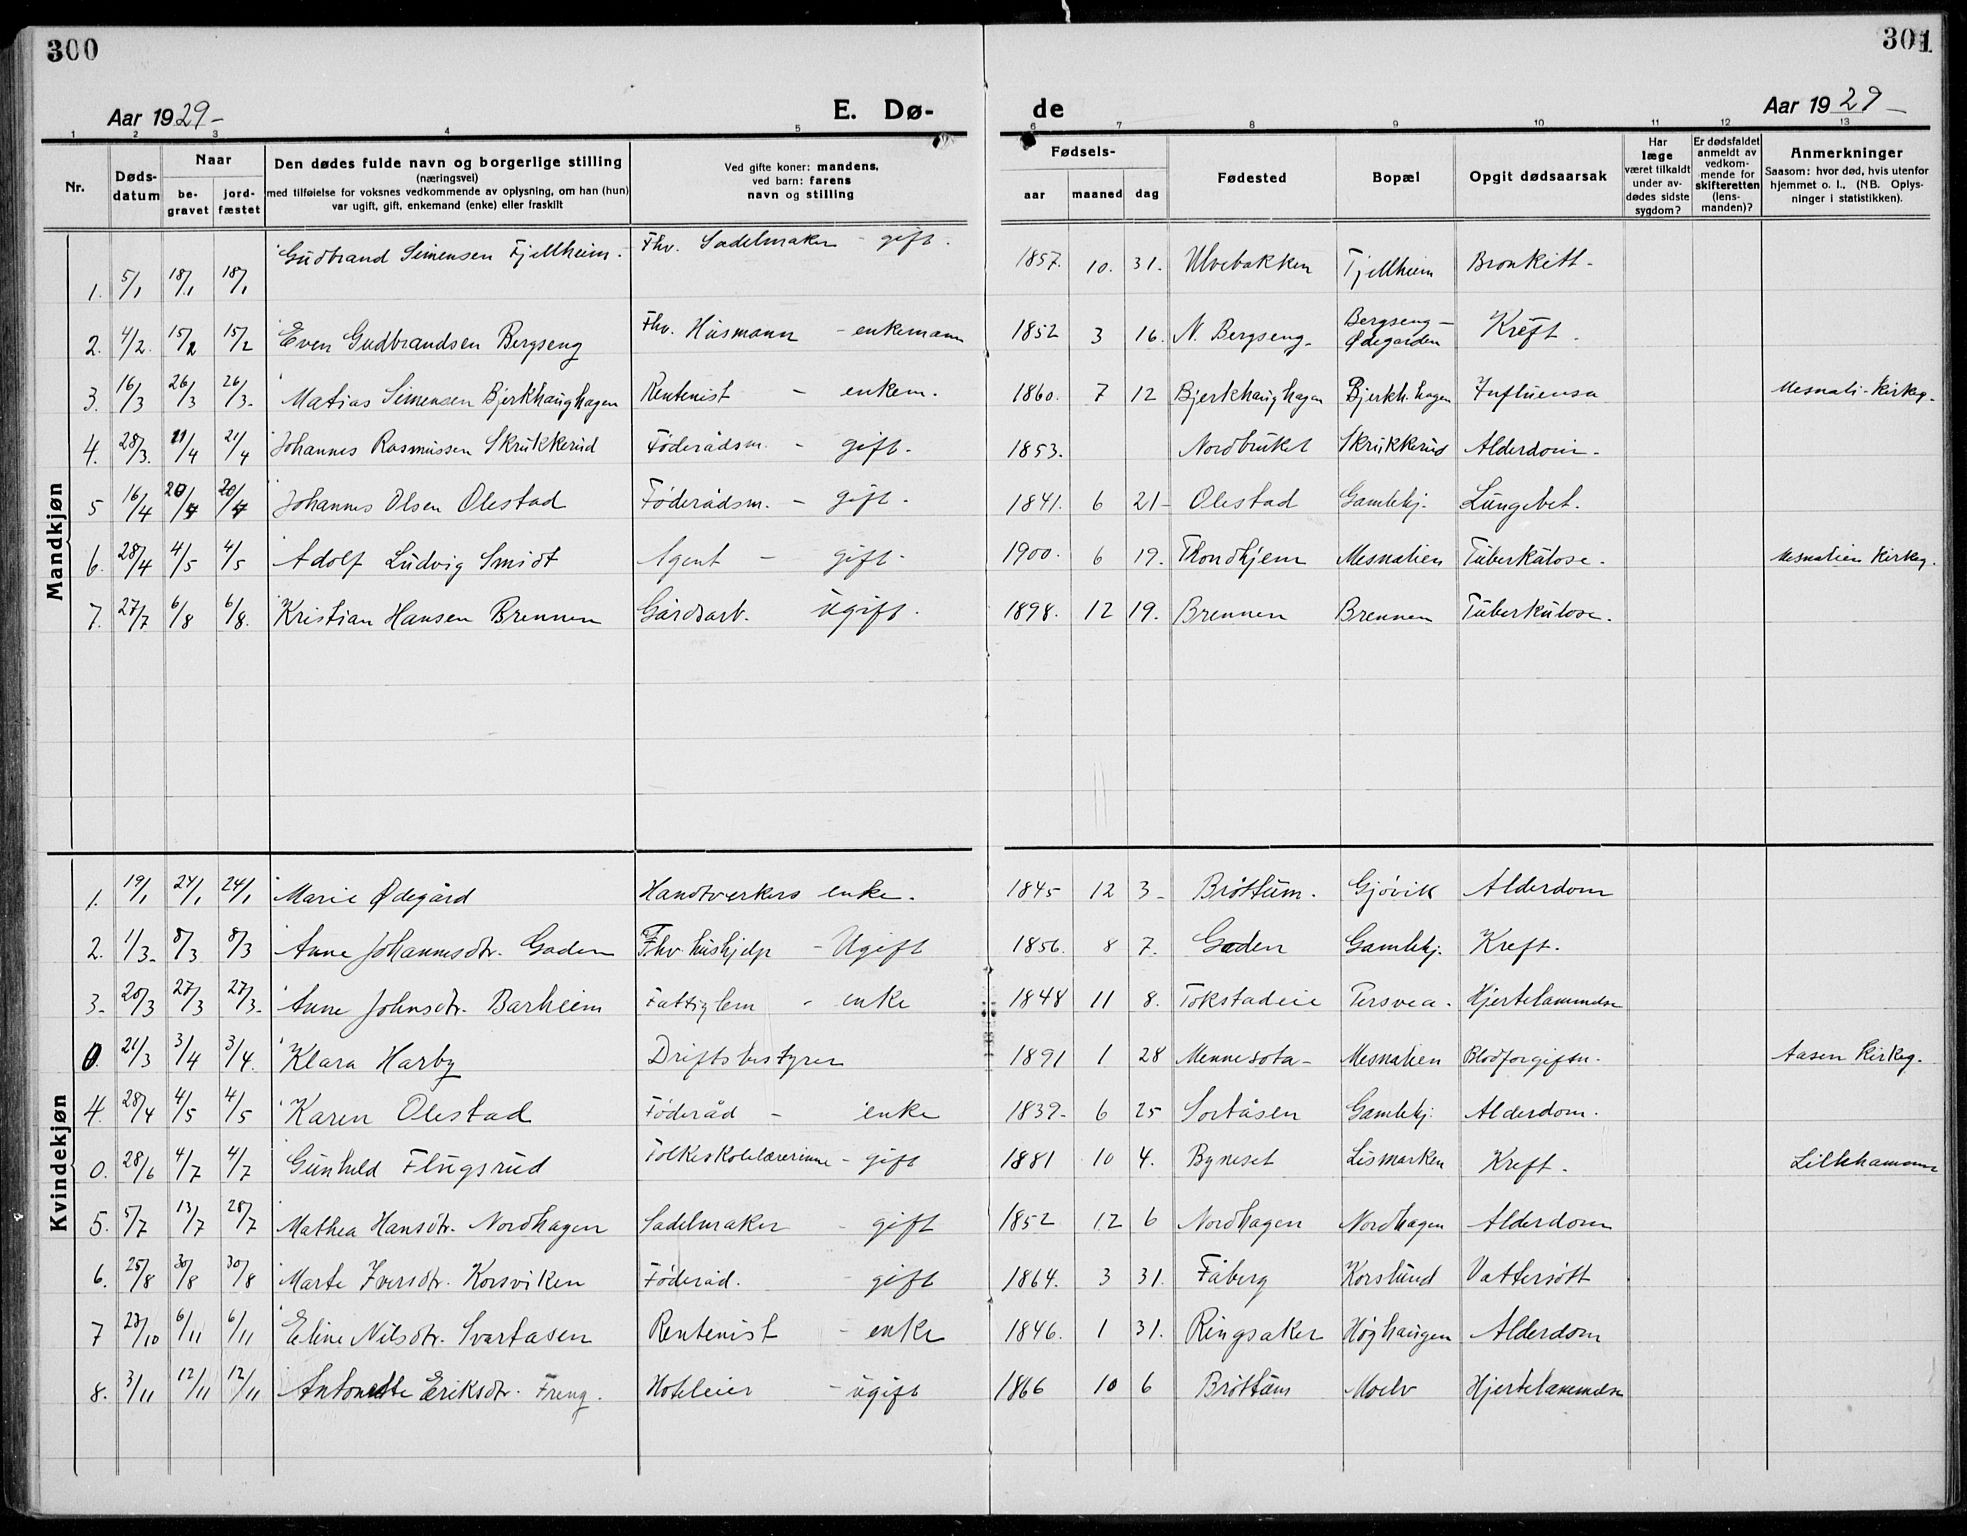 300
301
Aar 1929-
E. Dø-
de
Aar 1929-
1 2 3 4 5 6 7 8 9 10 11 12 13
Nr.
Døds-
datum
Naar
be-
gravet
jord-
fæstet
Den dødes fulde navn og borgerlige stilling
(næringsvei)
med tilføielse for voksnes vedkommende av oplysning, om han (hun)
var ugift, gift, enkemand (enke) eller fraskilt
Ved gifte koner: mandens,
ved barn: farens
navn og stilling
Fødsels-
aar
maaned
dag
Fødested
Bopæl
Opgit dødsaarsak
Har
læge
været tilkaldt
under av-
dødes sidste
sygdom?
Er dødsfaldet
anmeldt av
vedkom-
mende for
skifteretten
(lens-
manden)?
Anmerkninger
Saasom: hvor død, hvis utenfor
hjemmet o. l., (NB. Oplys-
ninger i statistikken).
Mandkjøn
1. 5/1 18/1 18/1 Gudbrand Simensen Fjellheim. Fhv. Sadelmaker - gift. 1857. 10. 31. Ulvebakken Fjellheim Bronkitt-
2. 4/2. 15/2 15/2 Even Gudbrandsen Bergseng Fhv. Husmann - enkemann 1852 3 16. N. Bergseng- Bergseng- Ødegården Kreft.
3. 16/3 26/3 26/3- Matias Simensen Bjerkhaughagen Rentenist - enkem. 1860. 7 12 Bjerkhaughagen Bjerkh.hagen Influensa Mesnali-kirkeg.
4. 28/3. 21/4 21/4 Johannes Rasmussen Skrukkerud Føderådsm. - gift. 1853. Nordbruket Skrukkerud Alderdom-
5 16/4 20/4 20/4 Johannes Olsen Olestad Føderådsm. - gift. 1841. 6 21- Olestad Gamlehj. Lungebet.
6. 28/4 4/5 4/5 Adolf Ludvig Smidt Agent - gift- 1900. 6 19. Trondhjem Mesnalien Tuberkulose. Mesnalien kirkeg.
7. 27/7 6/8 6/8. Kristian Hansen Brennen Gårdsarb. ugift. 1898. 12 19. Brennen Brennen Tuberkulose.
Kvindekjøn
1. 19/1 24/1 24/1 Marie Ødegård Handtverkers enke. 1845 12 3- Brøttum. Gjøvik Alderdom
2. 1/3- 8/3 8/3 Anne Johannesdtr. Goden Fhv. hushjelp - Ugift 1856. 8 7. Goden Gamlehj. Kreft.
3- 20/3 27/3 27/3- Anne Johnsdtr. Barheim Fattiglem - enke 1848 11 8. Tokstadeie Tersvea. Hjertelammelse
0. 21/3 3/4 3/4. Klara Harby Driftsbestyrer 1891 1 28 Mennesota- Mesnalien Blodforgiftn. Aasen kirkeg.
4. 28/4 4/5 4/5 Karen Olestad Føderåd - enke 1839- 6 25 Sortåsen Gamlehj. Alderdom.
0. 28/6 4/7 4/7 Gunhild Flugsrud Folkeskolelærerinne - gift 1881 10 4. Byneset Lismarken Kreft. Lillehammer
5. 5/7 13/7 28/7 Mathea Hansdtr. Nordhagen Sadelmaker - gift 1852 12 6 Nordhagen Nordhagen Alderdom
6. 25/8 30/8 30/8 Marte Iversdtr. Korsviken Føderåd. - gift 1864. 3 31. Fåberg Korslund Vattersott
7 27/10 6/11 6/11 Eline Nilsdtr. Svartasen Rentenist - enke 1846. 1 31. Ringsaker Høghaugen Alderdom
8. 3/11 12/11 12/11 Antonette Eriksdtr. Freng. Hoteleier - ugift 1866 10 6 Brøttum Moelv Hjertelammelse